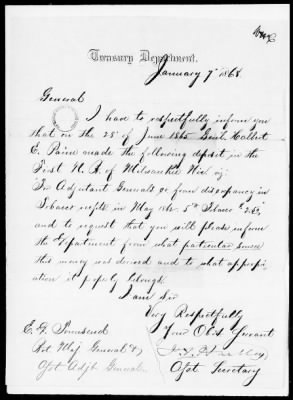 Treasury Department.
January 7" 1868.
General
I have to respectfully inform you
that on the 28" of June 1865 Genl. Halbert
E. Paine made the following deposit in the
First N. B. of Milwaukee Wis
For Adjutant Generals from discrepancy in
in May 186
and to request that you will please inform
the Department from what particular source
this money was derived and to what appropri-
ation it properly belongs.
I am Sir
Very Respectfully
Your Obt. Servant
E. D. Townsend
Bvt Maj General &
Asst Adjt General
Asst. Secretary